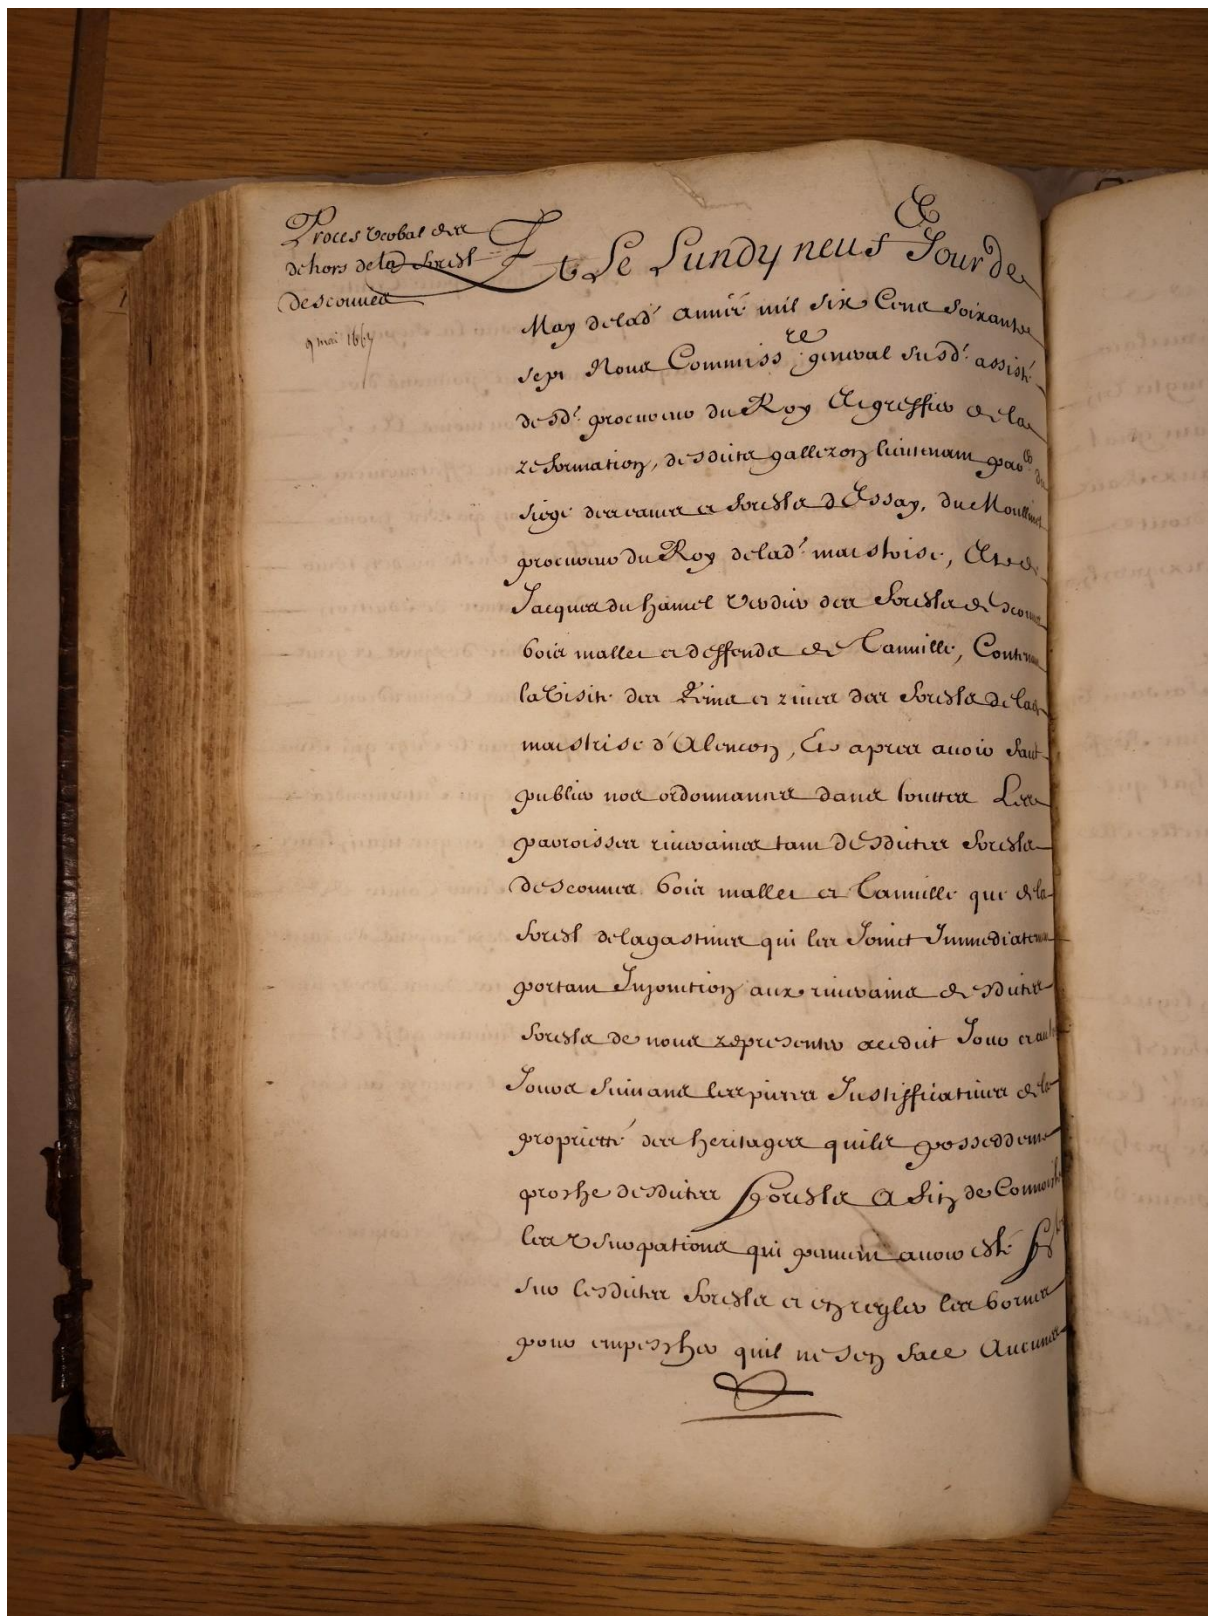 Proces verbal des
dehors de lad forest
descouves
9 mai 1667
Et Le Lundy neuf Jour de
May de lad annéé mil six Cens soixante
sept Nous Commiss re general susd assisté
desd procureur du Roy Et greffier de la
reformation, desdits galleron lieutenant par du
siege des eaues et forests d'Essay, du Moullinet
procureur du Roy de lad maistrise, Et de
Jacques du hamel verdier des forests de
bois mallet et deffends de Canuille,
la visite des et riues des forests de la
maistrise d'Alencon, Et apres auoir faict
publier nos ordonnances dans touttes Les
parroisses riueraines tant desdites forests
descouues bois mallet et Canuille que de la
forest de la gastine qui les Joinct Immediatement
portant Injonction aux riuerains desdites
forests de nous representer cedit Jour et aut
Jours suiuans les pieces Justifficatiues de la
proprietté des heritages quils posseddent
proche desdites forests a fin de Connoistre
les vsurpations qui peuuent auoir esté
sur lesdites forests et en regler les bornes
pour empescher quil ne sen face Aucunes